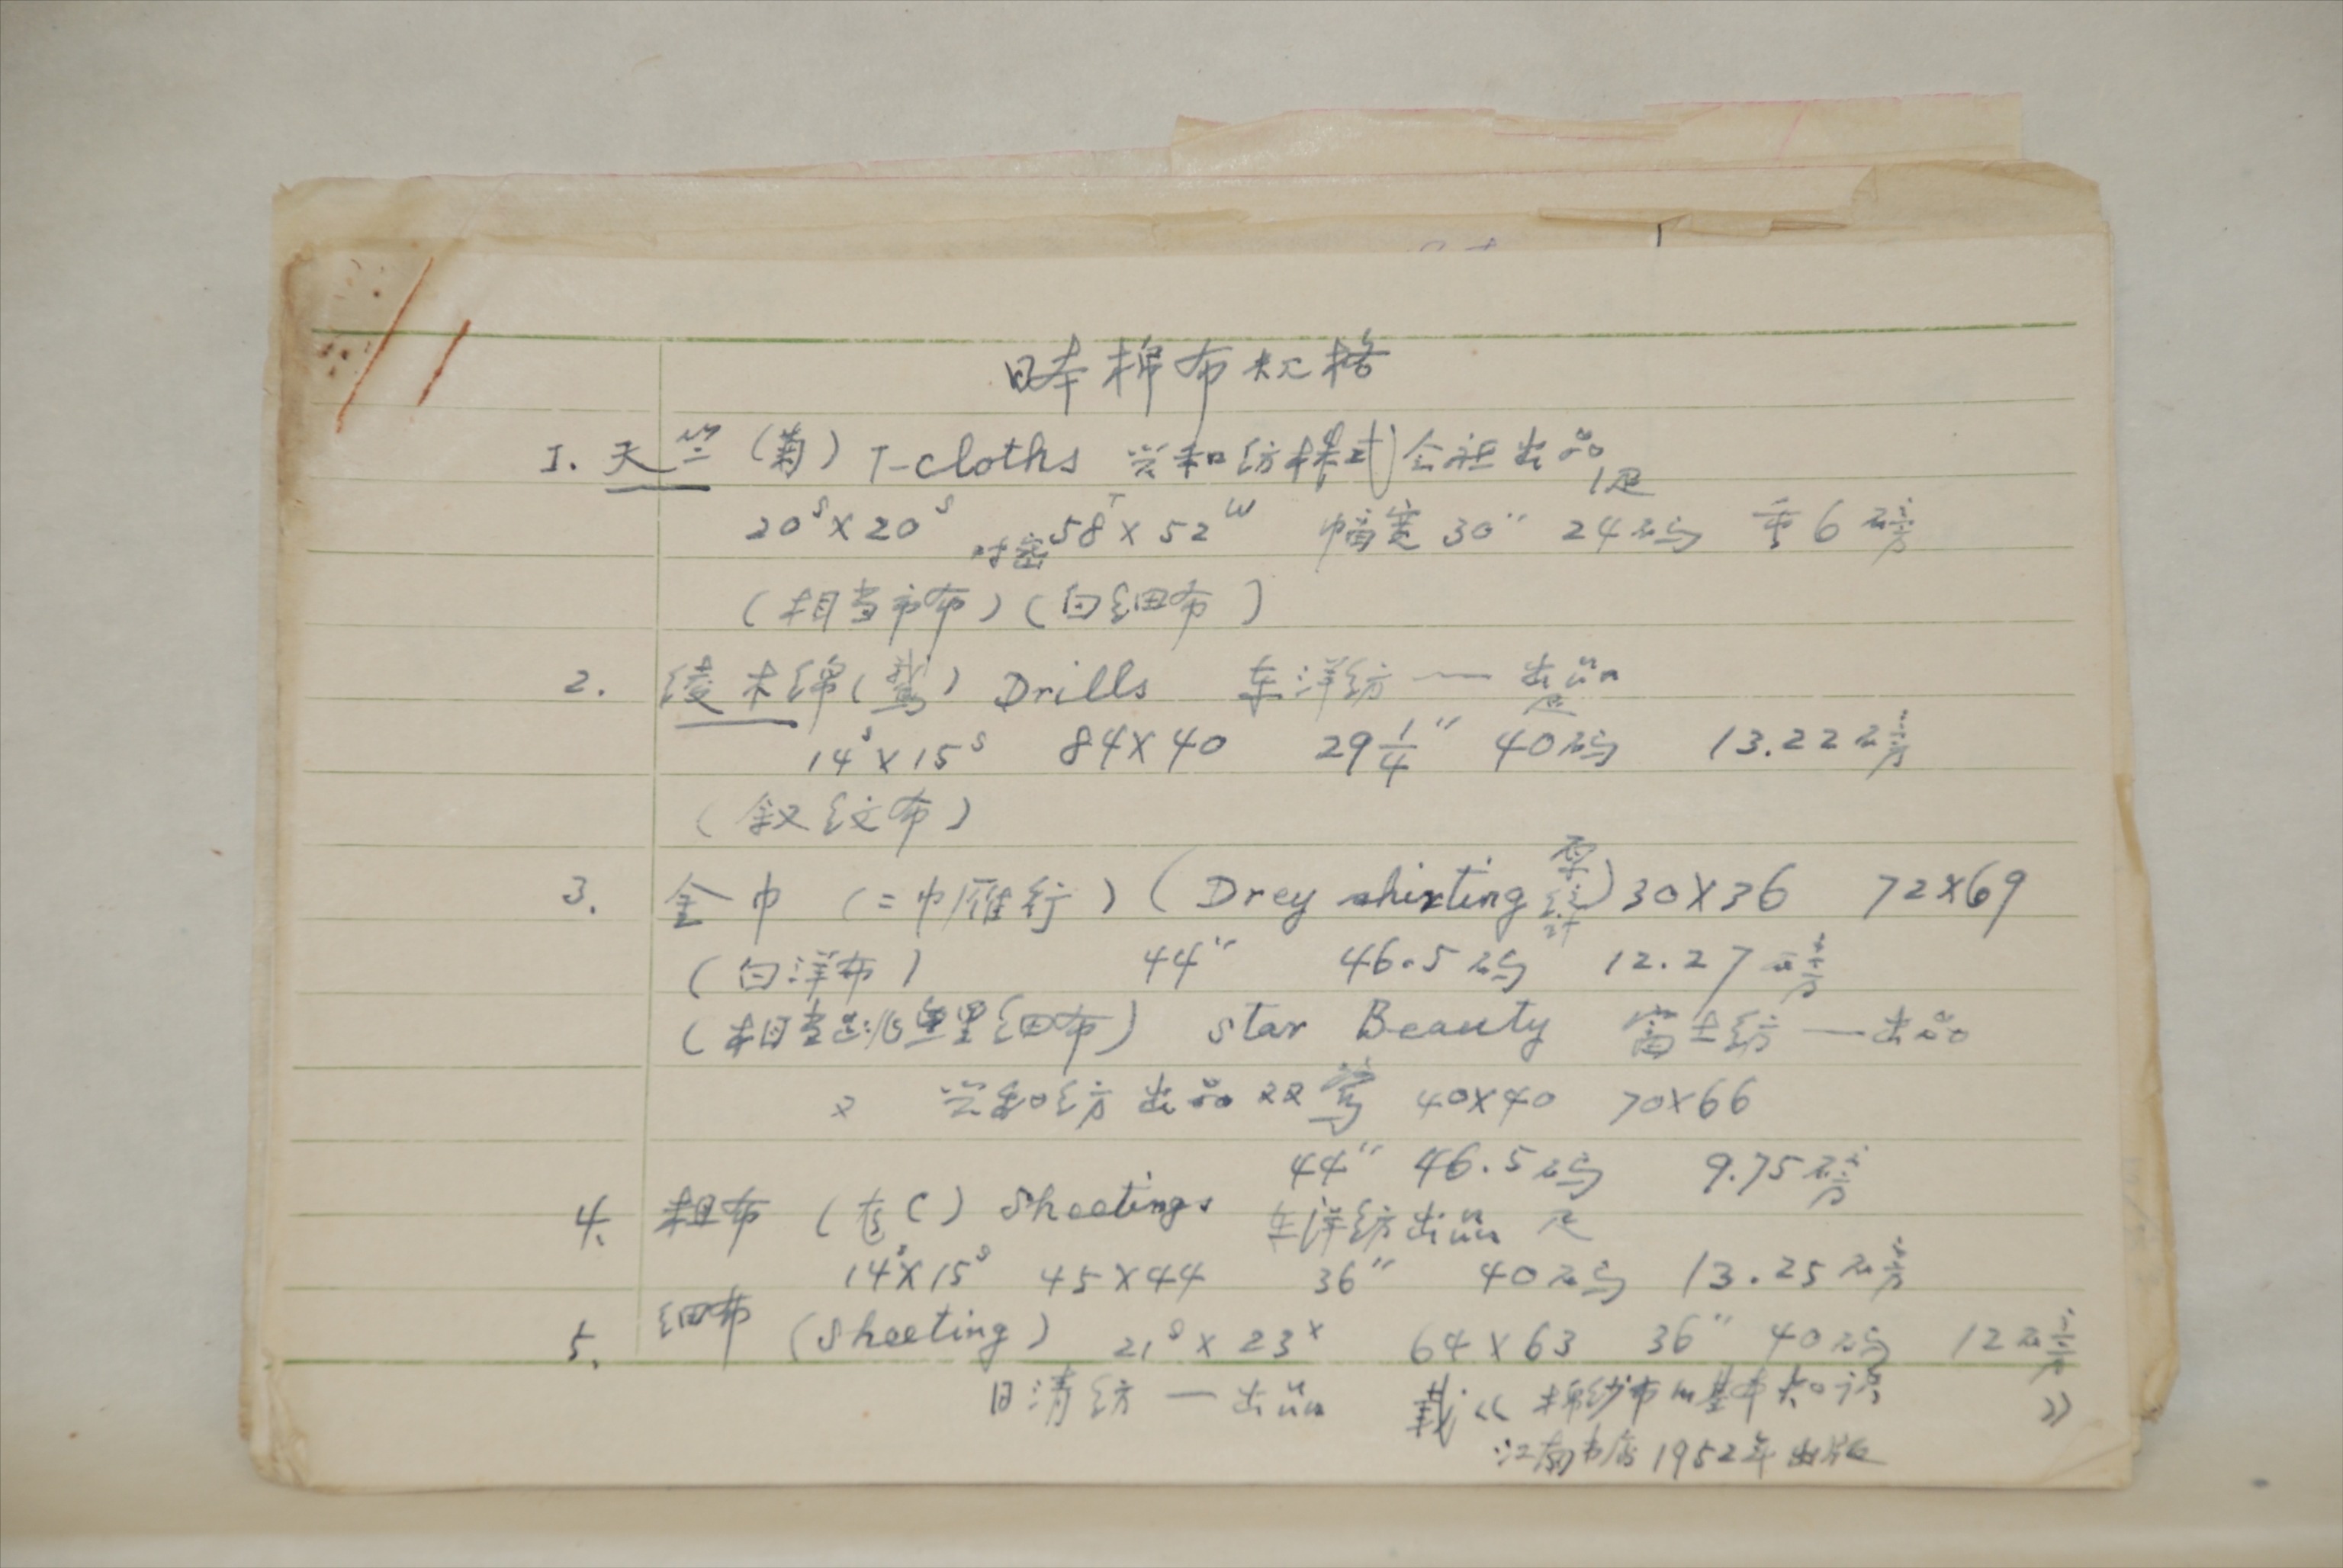 日本棉布规格
1. 天竺(菊) T-cloths 兴和纺株式会社出品
1疋
20ˢ×20ˢ 吋密58ᵀ×52ᵂ 幅宽30" 24码 重6磅
(相当市布)(白细布)
2. 绫木绵(鹅) Drills 东洋纺一出品
疋
14ˢ×15ˢ 84×40 29¼" 40码 13.22磅
(斜纹布)
3. 金巾(二巾雁行)(Drey shirting) 30×36 72×69
(白洋布) 44" 46.5码 12.27磅
(相当跳鱼里细布) Star Beauty 富士纺一出品
又 兴和纺出品双莺 40×40 70×66
44" 46.5码 9.75磅
4. 粗布(C) Sheetings 东洋纺出品 疋
14ˢ×15ˢ 45×44 36" 40码 13.25磅
5. 细布(Sheeting) 21ˢ×23ˣ 64×63 36" 40码 12磅
日清纺一出品 载《棉纱布的基本知识》
江南书店1952年出版